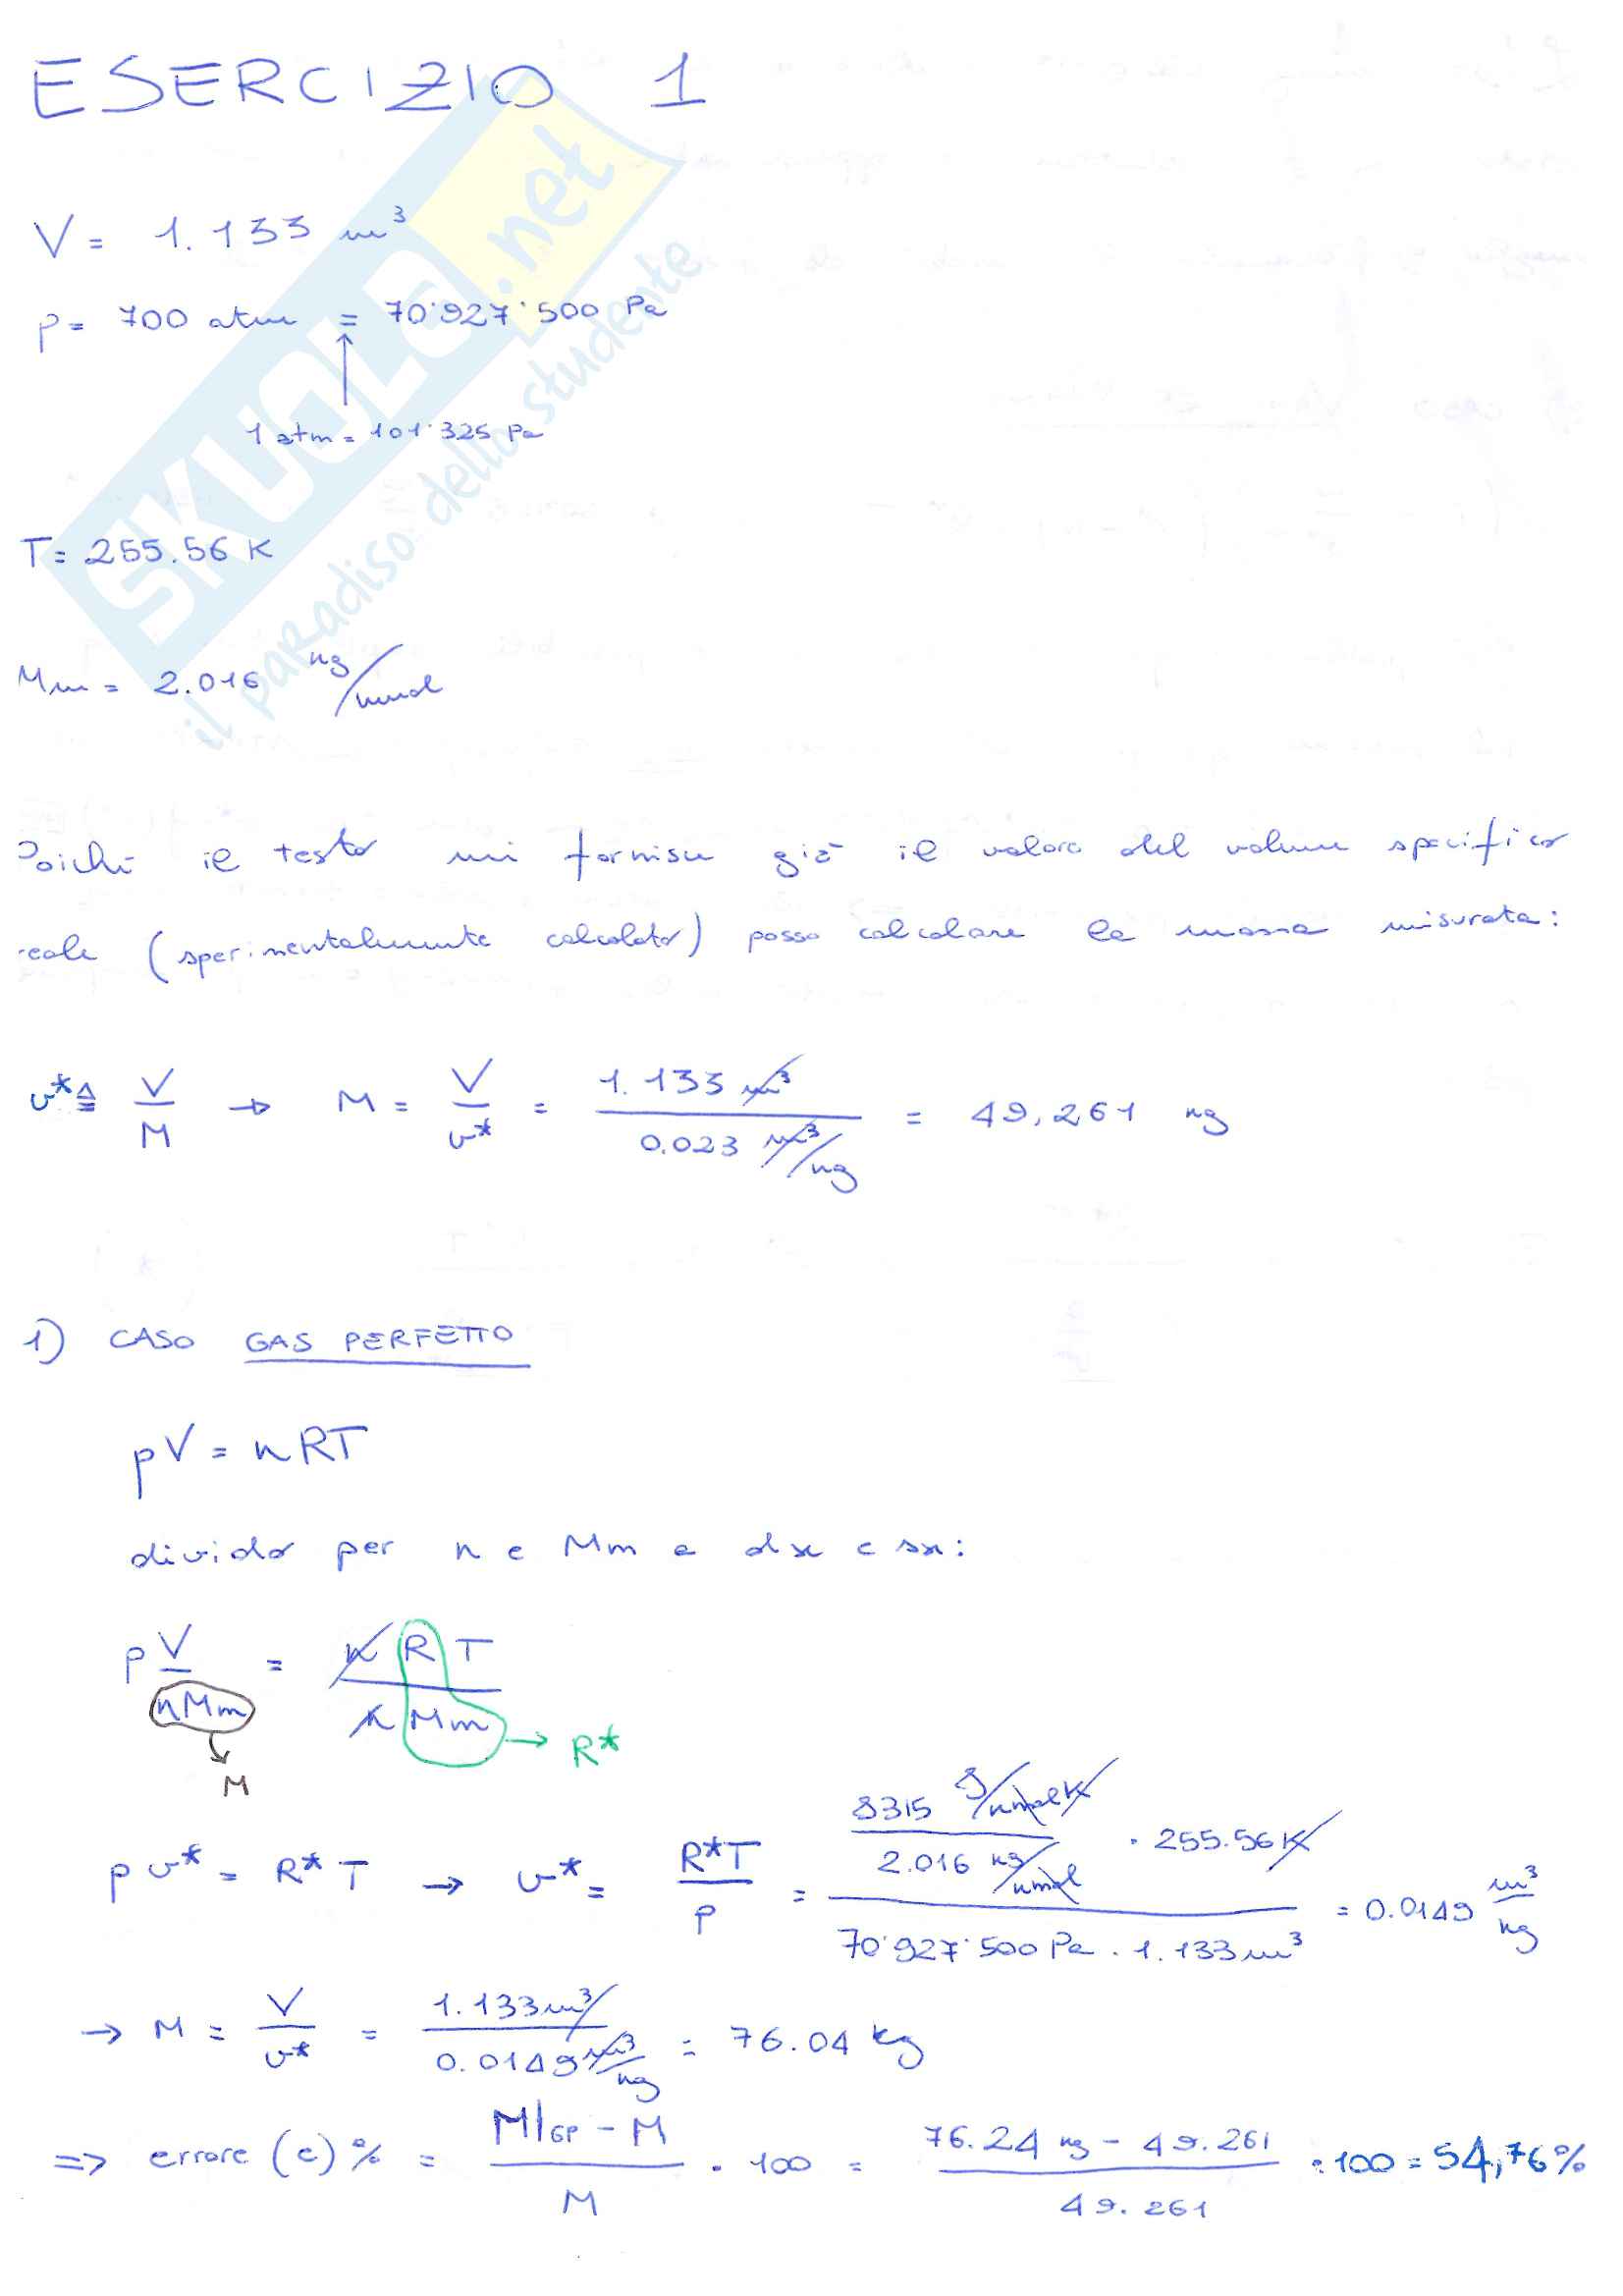 ESERCIZIO 1
V = 1.133 m³
p = 700 atm = 70'927'500 Pa
1 atm = 101'325 Pa
T = 255.56 K
Mm = 2.016 kg/kmol
SKUOLA.net
il paradiso dello studente
Poiché il testo mi fornisce già il valore del volume specifico
reale (sperimentalmente calcolato) posso calcolare la massa misurata:
v* ≜ V/M → M = V/v* = 1.133 m³ / 0.023 m³/kg = 49,261 kg
1) CASO GAS PERFETTO
pV = nRT
divido per n e Mm a dx e sx:
p V/nMm = nRT/nMm → R*
M
p v* = R* T → v* = R*T/p = (8315 J/kmol K / 2.016 kg/kmol · 255.56 K) / (70'927'500 Pa · 1.133 m³) = 0.0149 m³/kg
→ M = V/v* = 1.133 m³ / 0.0149 m³/kg = 76.04 kg
=> errore (e) % = (M|GP - M)/M · 100 = (76.24 kg - 49.261)/49.261 · 100 = 54,76%